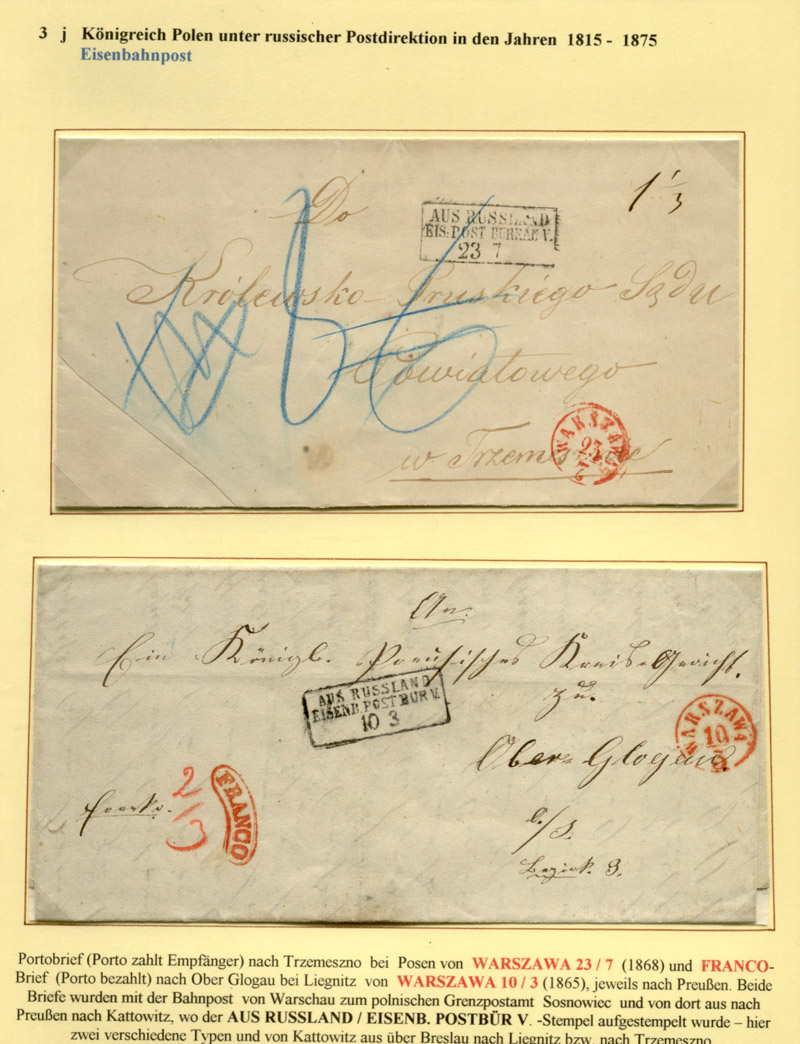 3 j Königreich Polen unter russischer Postdirektion in den Jahren 1815 - 1875
Eisenbahnpost
1 1/3
Do
AUS RUSSLAND
EIS: POST BUREAU V.
23 7
Królewsko-Pruskiego Sądu
Powiatowego
WARSZAWA
23
7
w Trzemesznie
An
Ein Königl. Preußisches Kreis-Gericht.
zu.
AUS RUSSLAND
EISENB. POSTBUR V.
10 3
WARSZAWA
10
3
Ober-Glogau
2/3
FRANCO
franko.
Bezirk. 3.
Portobrief (Porto zahlt Empfänger) nach Trzemeszno bei Posen von WARSZAWA 23 / 7 (1868) und FRANCO-
Brief (Porto bezahlt) nach Ober Glogau bei Liegnitz von WARSZAWA 10 / 3 (1865), jeweils nach Preußen. Beide
Briefe wurden mit der Bahnpost von Warschau zum polnischen Grenzpostamt Sosnowiec und von dort aus nach
Preußen nach Kattowitz, wo der AUS RUSSLAND / EISENB. POSTBÜR V. -Stempel aufgestempelt wurde – hier
zwei verschiedene Typen und von Kattowitz aus über Breslau nach Liegnitz bzw. nach Trzemeszno